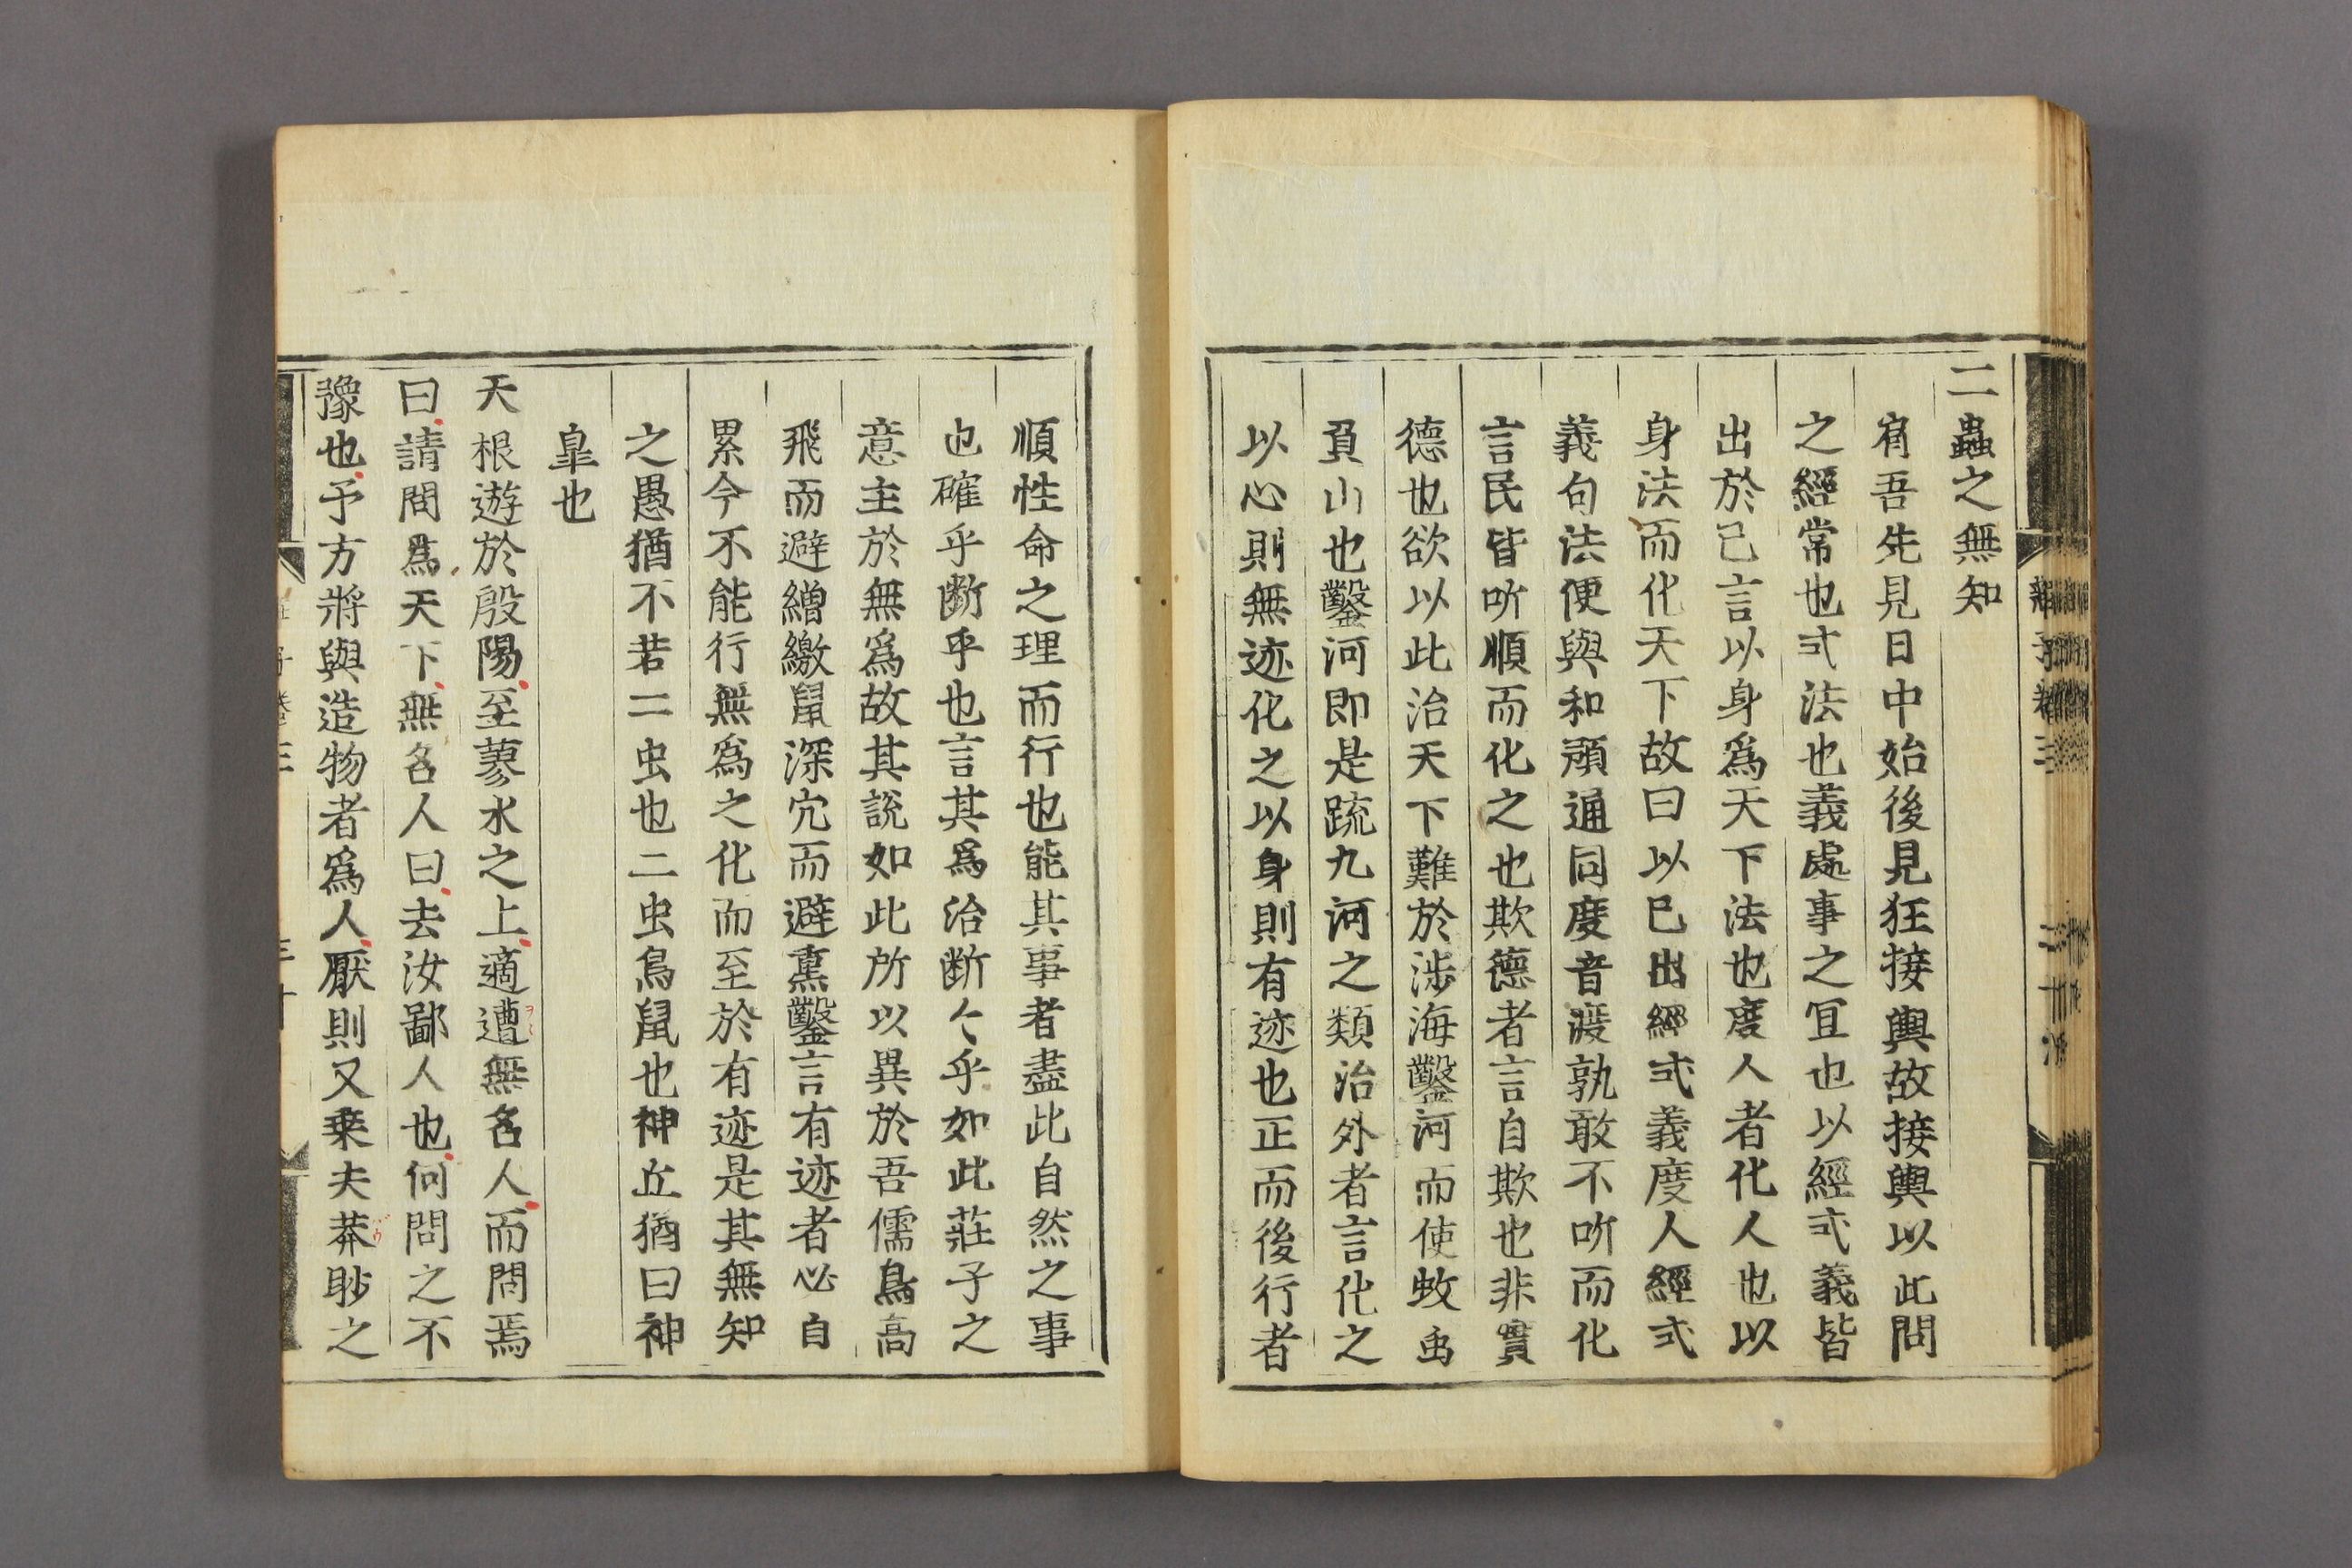 二蟲之無知
肩吾先見日中始後見狂接輿故接輿以此問
之經常也式法也義處事之冝也以經式義皆
出於己言以身爲天下法也度人者化人也以
身法而化天下故曰以已出經式義度人經式
義句法便與和頑通同度音渡孰敢不听而化
言民皆听順而化之也欺德者言自欺也非實
德也欲以此治天下難於涉海鑿河而使蚊䖝
負山也鑿河即是疏九河之類治外者言化之
以心則無迹化之以身則有迹也正而後行者
順性命之理而行也能其事者盡此自然之事
也確乎斷乎也言其爲治断〻乎如此莊子之
意主於無爲故其說如此所以異於吾儒鳥高
飛而避繒繳鼠深穴而避熏鑿言有迹者必自
累今不能行無爲之化而至於有迹是其無知
之愚猶不若二虫也二虫鳥鼠也神丘猶曰神
皐也
天根遊於殷陽至蓼水之上適遭無名人而問焉
曰請問爲天下無名人曰去汝鄙人也何問之不
豫也予方將與造物者爲人厭則又乗夫莽眇之
莊子卷三